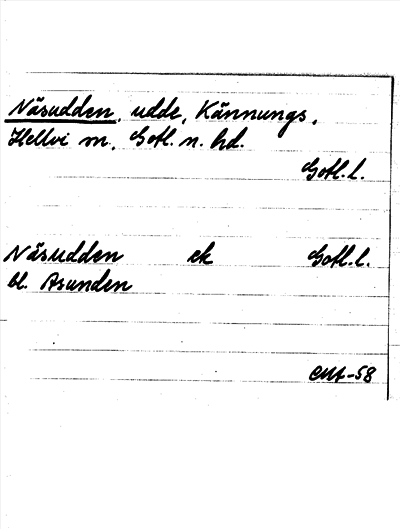 Näsudden, udde, Kännungs,
Hellvi sn, Gotl. n. hd.
Gotl. l.
Näsudden ek Gotl. l.
bl. Asunden
-58